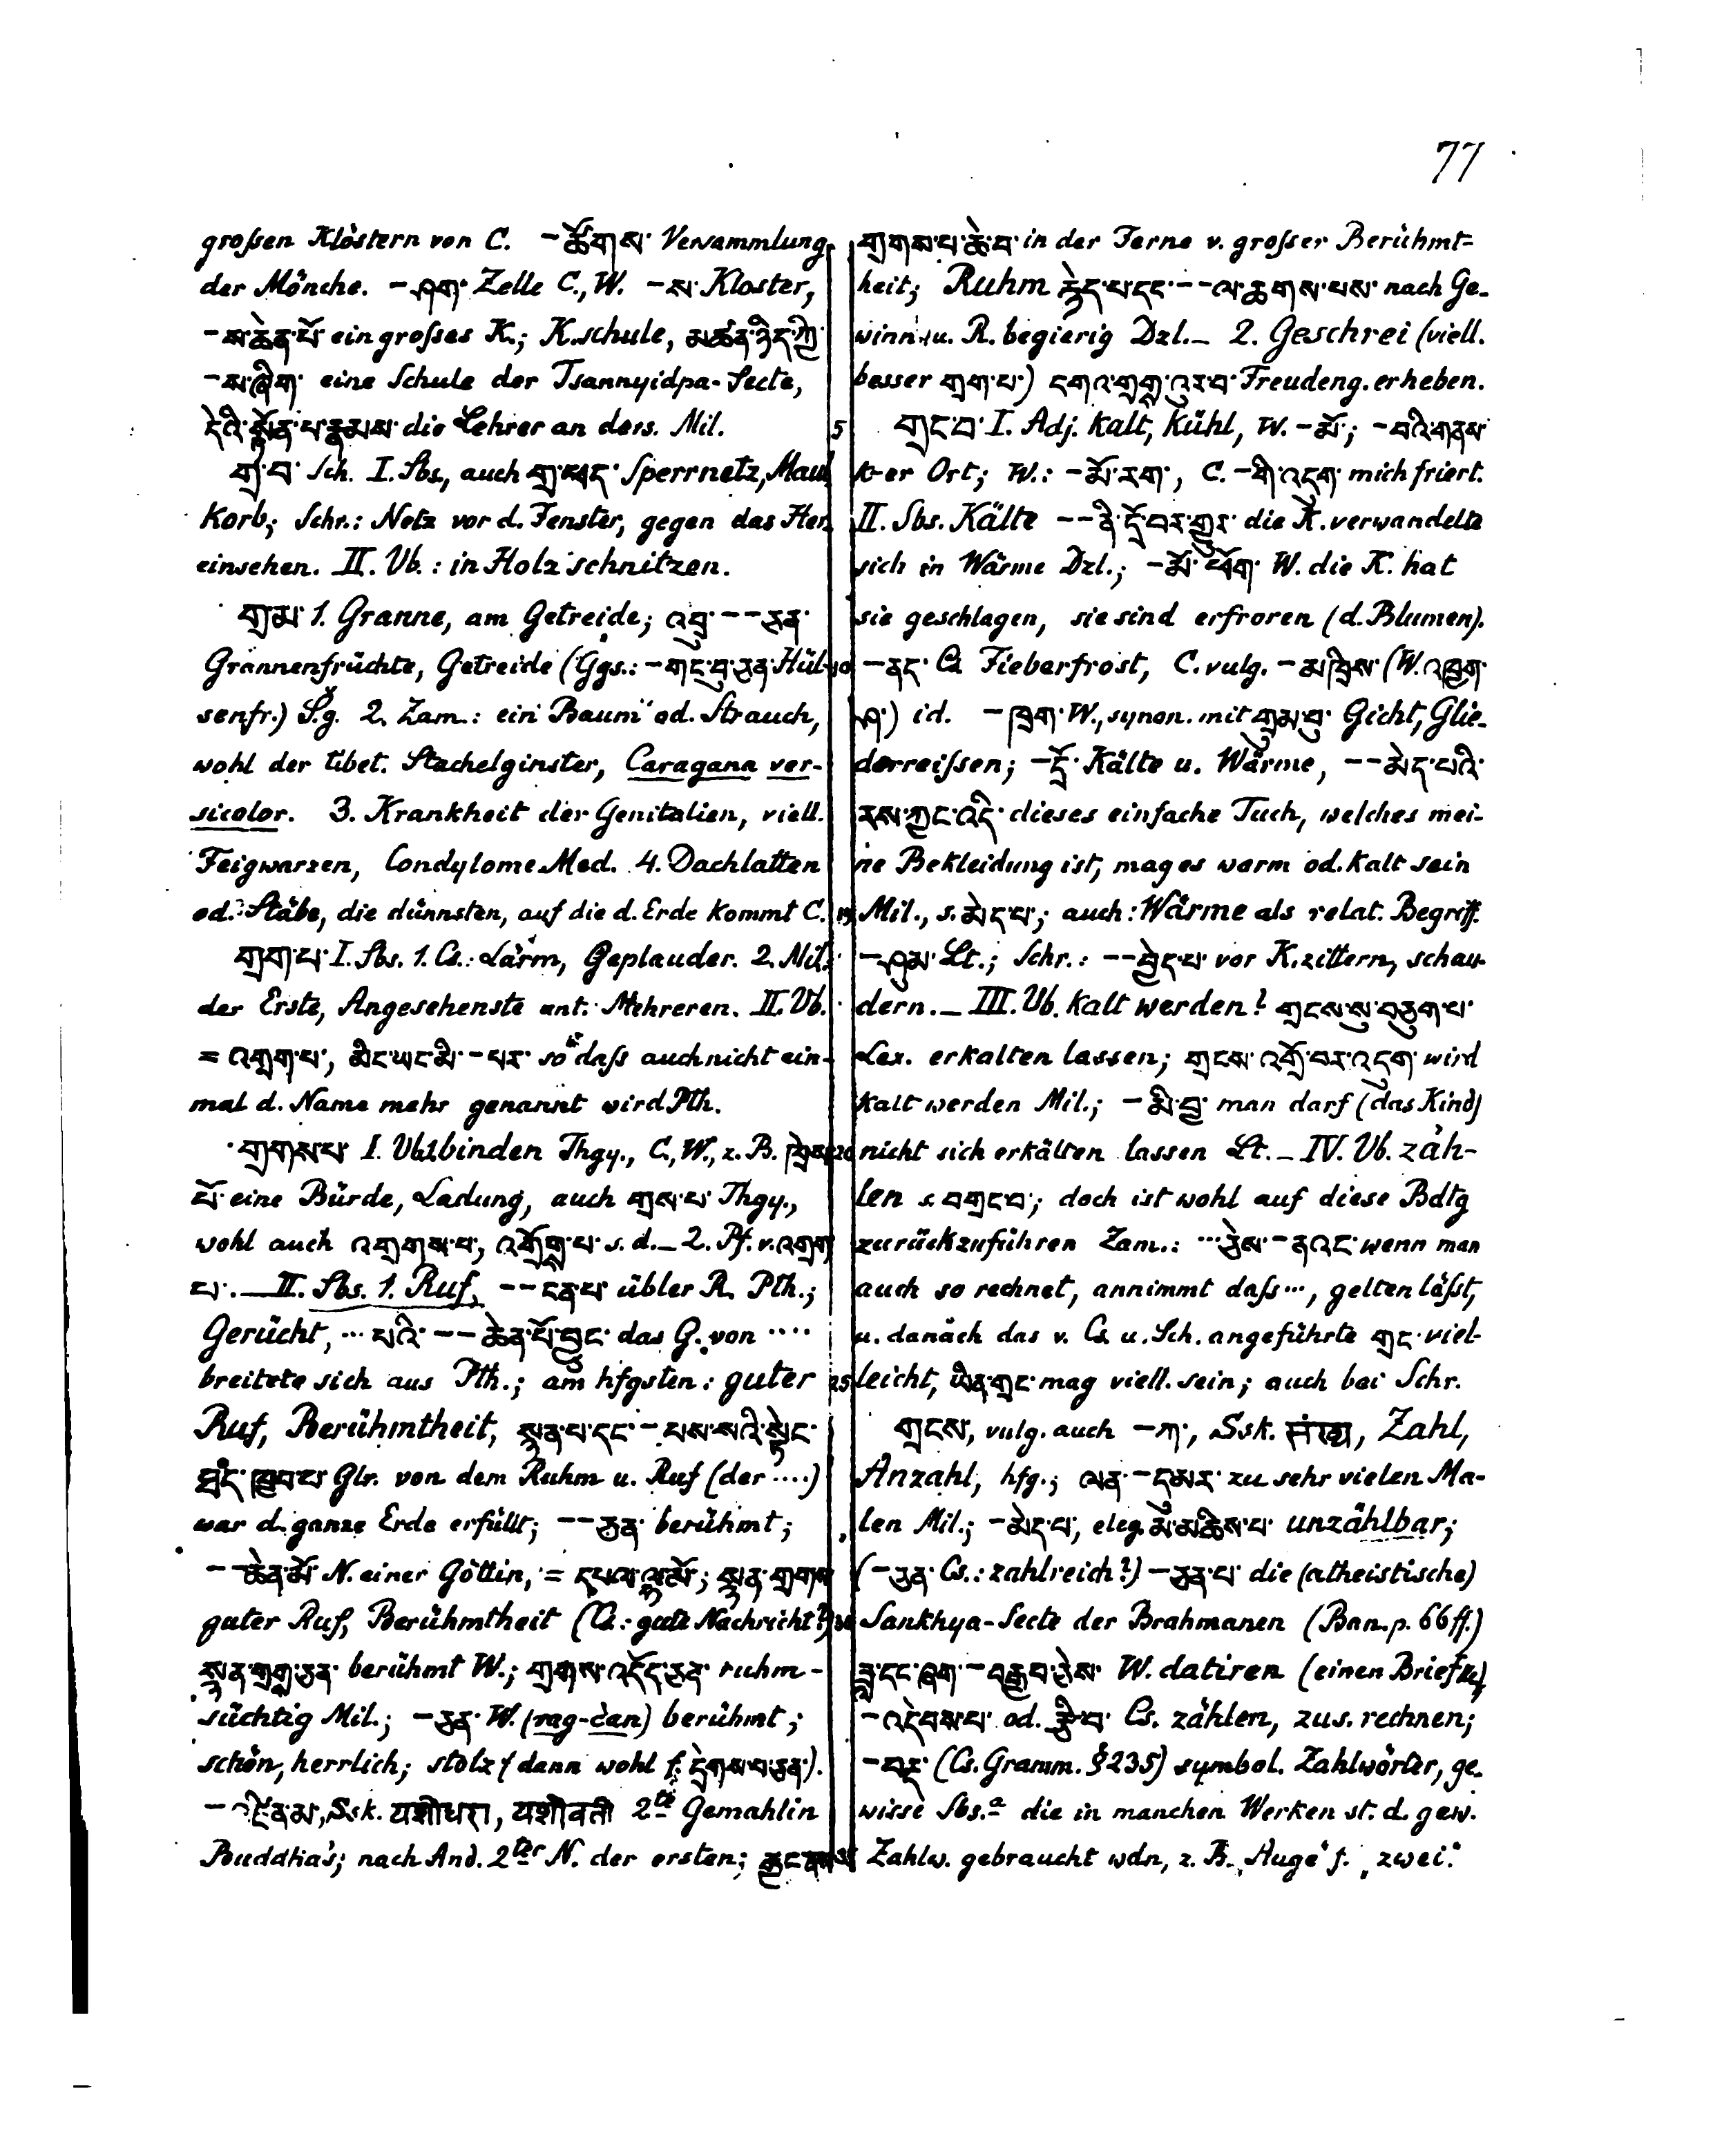 77
großen Klöstern von C. –ཚོགས་ Versammlung
der Mönche. –ཤག་ Zelle C., W. –ས་ Kloster,
–ས་ཆེན་པོ་ ein großes K.; K.schule, མཚན་ཉིད་ཀྱི་
–ས་ཞིག་ eine Schule der Tsannyidpa-Secte,
དེའི་སྟོན་པ་རྣམས་ die Lehrer an ders. Mil.
གྲ་བ་ Sch. I. Sbs., auch Sperrnetz, Maul
Korb; Schr.: Netz vor d. Fenster, gegen das Her-
einsehen. II. Vb.: in Holz schnitzen.
གྲ་མ་ 1. Granne, am Getreide; འབྲུ་––ཅན་
Grannenfrüchte, Getreide (Ggs.: –གང་བུ་ཅན་ Hül-
senfr.) S.g. 2. Zam.: ein Baum od. Strauch,
wohl der tibet. Stachelginster, Caragana ver-
sicolor. 3. Krankheit der Genitalien, viell.
Feigwarzen, Condylome Med. 4. Dachlatten
od. Stäbe, die dünnsten, auf die d. Erde kommt C.
གྲག་པ་ I. Sbs. 1. Cs.: Lärm, Geplauder. 2. Mil.:
der Erste, Angesehenste unt. Mehreren. II. Vb.
= འགྲག་པ་, མིང་ཡང་མི་–པར་ so daß auch nicht ein-
mal d. Name mehr genannt wird Pth.
གྲགས་པ་ I. Vb. 1. binden Thgy., C., W., z. B. ཁྲེས་
པོ་ eine Bürde, Ladung, auch གྲས་པ་ Thgy.,
wohl auch འགྲགས་པ་, འགྲོགས་པ་ s. d. – 2. Pf. v. འགྲག་
པ་. – II. Sbs. 1. Ruf, ––ངན་པ་ übler R. Pth.;
Gerücht, ··· པའི་––ཆེན་པོ་བྱུང་ das G. von ····
breitete sich aus Pth.; am hfgsten: guter
Ruf, Berühmtheit, སྙན་པ་དང་–པས་སའི་སྟེང་
ཐམས་ཅད་ཁྱབ་པ་ Glr. von dem Ruhm u. Ruf (der ····)
war d. ganze Erde erfüllt; ––ཅན་ berühmt;
––ཆེན་མོ་ N. einer Göttin, = དཔལ་ལྷ་མོ་; སྙན་གྲགས་
guter Ruf, Berühmtheit (Cs.: gute Nachricht?)
སྙན་གྲགས་ཅན་ berühmt W.; གྲགས་འདོད་ཅན་ ruhm-
süchtig Mil.; –ཅན་ W. (rag-čan) berühmt;
schön, herrlich; stolz (dann wohl f. དྲེགས་པ་ཅན་).
–འཛིན་མ་, Ssk. यशोधरा, यशोवती 2te Gemahlin
Buddha's; nach And. 2ter N. der ersten; རྒྱང་ནས་
གྲགས་པ་ཆེ་བ་ in der Ferne v. großer Berühmt=
heit; Ruhm རྙེད་པ་དང་––ལ་ཆགས་པས་ nach Ge-
winn u. R. begierig Dzl. – 2. Geschrei (viell.
besser གྲག་པ་) དགའ་གྲགས་འུར་བ་ Freudeng. erheben.
5 གྲང་བ་ I. Adj. kalt, kühl, W. –མོ་; –བའི་གནས་
k-er Ort; W.: –མོ་རག་, C. –གི་འདུག་ mich friert.
II. Sbs. Kälte ––ནི་དྲོ་བར་གྱུར་ die K. verwandelte
sich in Wärme Dzl.; –མོ་ཕོག་ W. die K. hat
sie geschlagen, sie sind erfroren (d. Blumen).
10 –ནད་ Cs. Fieberfrost, C. vulg. –མཁྲིས་ (W. འཁྱག་
ཤ་) id. –ཁྲག་ W., synon. mit གྲུམ་བུ་ Gicht, Glie-
derreißen; –དྲོ་ Kälte u. Wärme, ––མེད་པའི་
རས་རྐྱང་འདི་ dieses einfache Tuch, welches mei-
ne Bekleidung ist, mag es warm od. kalt sein
15 Mil., s. མེད་པ་; auch: Wärme als relat. Begriff.
–ཤུམ་ Lt.; Schr.: ––བྱེད་པ་ vor K. zittern, schau-
dern. – III. Vb. kalt werden? གྲངས་སུ་བཅུག་པ་
Lex. erkalten lassen; གྲངས་འགྲོ་བར་འདུག་ wird
kalt werden Mil.; –མི་བྱ་ man darf (das Kind)
20 nicht sich erkälten lassen Lt. – IV. Vb. zäh-
len s. བགྲང་བ་; doch ist wohl auf diese Bdtg
zurückzuführen Zam.: ···ཅེས་–ནའང་ wenn man
auch so rechnet, annimmt daß···, gelten läßt,
u. danach das v. Cs. u. Sch. angeführte གྲང་ viel-
25 leicht, ཡིན་གྲང་ mag viell. sein; auch bei Schr.
གྲངས་, vulg. auch –ཀ་, Ssk. संख्या, Zahl,
Anzahl, hfg.; ལན་–དུམར་ zu sehr vielen Ma-
len Mil.; –མེད་པ་, eleg. མི་མཆིས་པ་ unzählbar;
(–ཅན་ Cs.: zahlreich?) –ཅན་པ་ die (atheistische)
30 Sankhya-Secte der Brahmanen (Ban. p. 66 ff.)
ཟླ་དང་ཞག་–བརྒྱབ་ཅེས་ W. datiren (einen Brief &c)
–འདེབས་པ་ od. རྩི་བ་ Cs. zählen, zus. rechnen;
–བརྡ་ (Cs. Gramm. § 235) symbol. Zahlwörter, ge-
wisse Sbs.a die in manchen Werken st. d. gew.
35 Zahlw. gebraucht wdn, z. B. „Auge" f. „zwei."